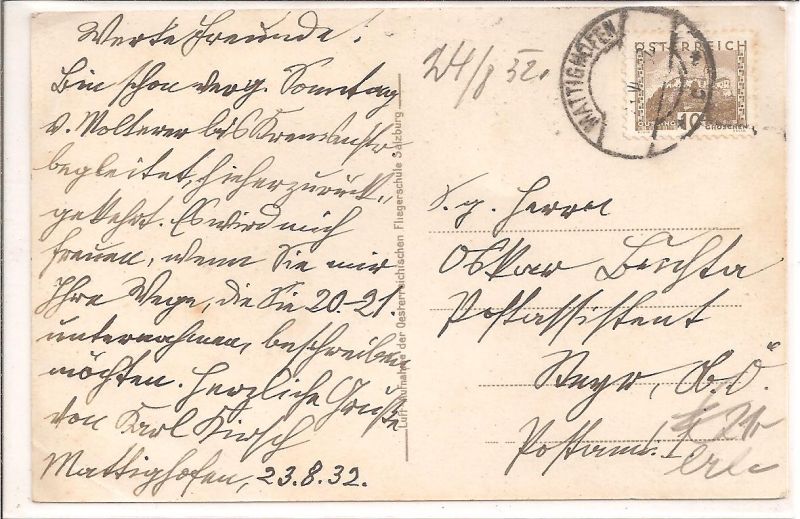 Werte Freunde!
Bin schon verg. Sonntag
v. Molterer bis Kremsmstr.
begleitet, hieher zurück-
gekehrt. Es wird mich
freuen, wenn Sie mir
Ihre Wege, die Sie 20.-21.
unternahmen, beschreiben
möchten. Herzliche Grüße
von Karl Kirsch
Mattighofen, 23.8.32.
Luft-Aufnahme der Oesterreichischen Fliegerschule Salzburg
24/8 32.
MATTIGHOFEN
ÖSTERREICH
10
GROSCHEN
S. g. Herrn
Oskar Buchta
Postassistent
Steyr, Ob.Ö.
Postamt I
erl